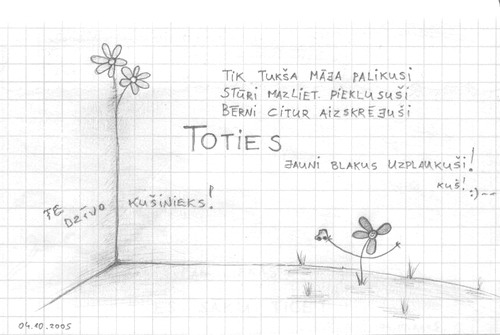 TIK TUKŠA MĀJA PALIKUSI
STŪRI MAZLIET PIEKLUSUŠI
BĒRNI CITUR AIZSKRĒJUŠI
TOTIES
JAUNI BLAKUS UZPLAUKUŠI!
KUŠ! :)--
TE DZĪVO KUŠINIEKS!
04.10.2005